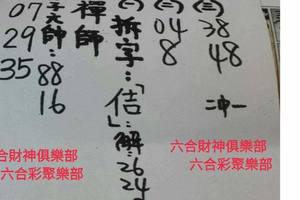 ㊂ 38 48 二中一
㊁ 04 8
㊀ 拆字:「佶」:解:26 24
禪師
子元師: 88 16
07 29 35
六合財神俱樂部
六合彩聚樂部
合財神俱樂部
六合彩聚樂部